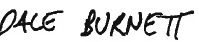 DALE BURNETT